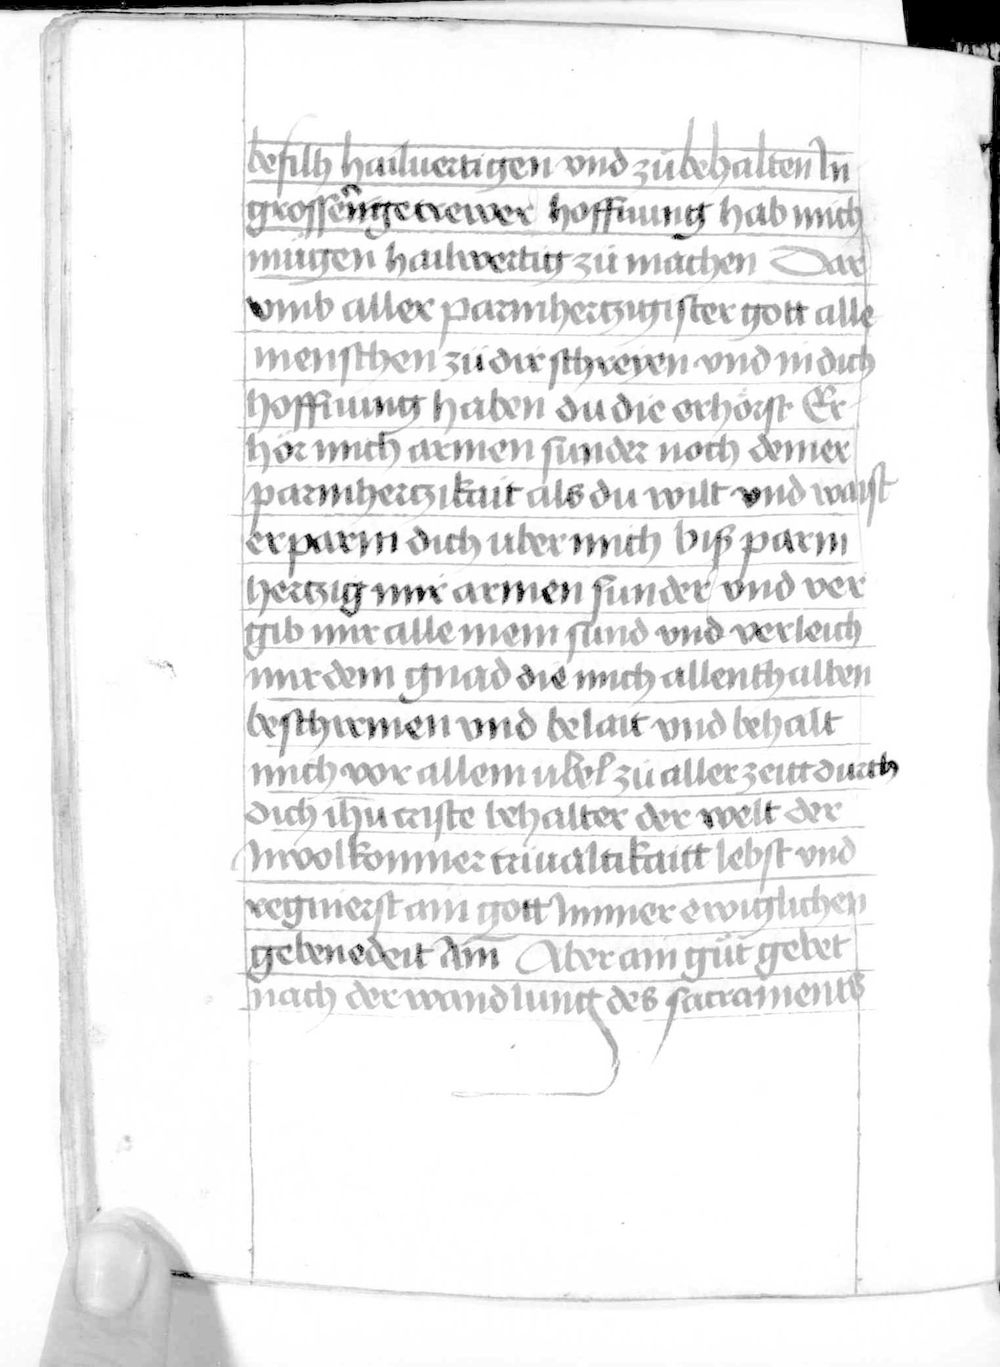 befilh hailwertigen vnd zů behalten In
grossen̄ getrewer hoffnung hab mich
mügen hailwertig zů machen Dar
vmb aller parmhertzigister gott alle
menschen zů dir schreyen vnd in dich
hoffnung haben du die erhörst Er
hör mich armen sunder noch deiner
parmhertzikait als du wilt vnd waist
erparm dich uber mich biß parm
hertzig mir armen sunder vnd ver
gib mir alle mein sünd vnd verleich
mir dein gnad die mich allenthalben
beschirmen vnd belait vnd behalt
mich vor allem ubel zů aller zeitt durch
dich ih̄u criste behalter der welt der
In volkomner triualtikaitt lebst vnd
regnierst ain gott Immer ewiglichen
gebenedeit Am̄ Aber ain gůt gebet
nach der wandlung des sacraments